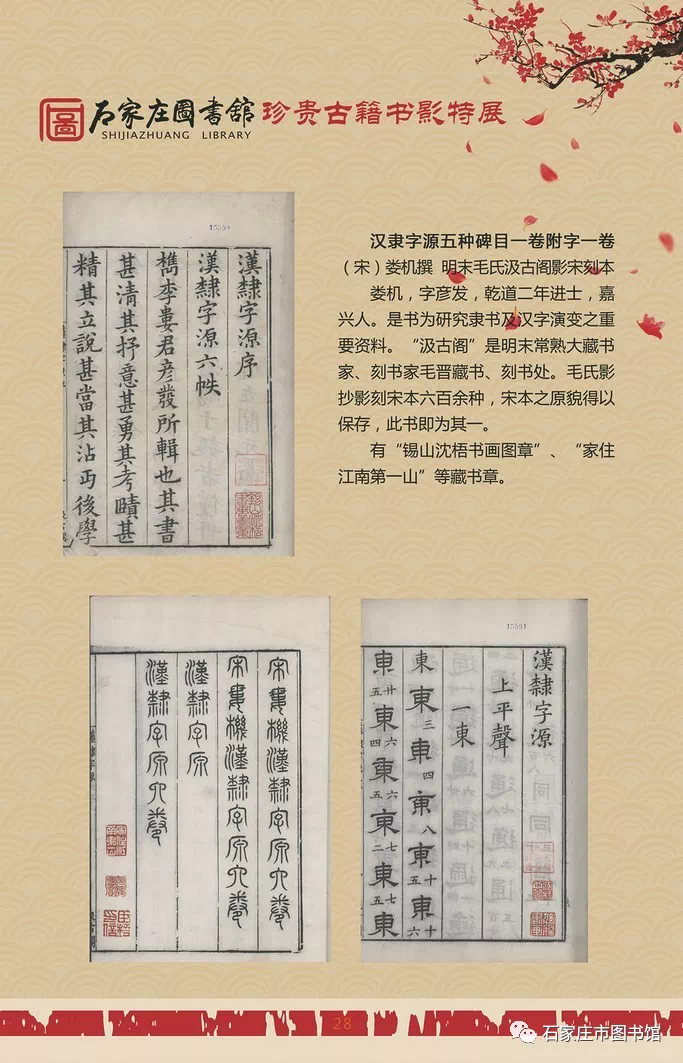 石家庄圖書舘 珍贵古籍书影特展
SHIJIAZHUANG LIBRARY
15591
漢隸字源序
漢隸字源六帙
檇李婁君彦發所輯也其書
甚清其抒意甚勇其考賾甚
精其立說甚當其沾丐後學
汉隶字源五种碑目一卷附字一卷
（宋）娄机撰 明末毛氏汲古阁影宋刻本
娄机，字彦发，乾道二年进士，嘉
兴人。是书为研究隶书及汉字演变之重
要资料。“汲古阁”是明末常熟大藏书
家、刻书家毛晋藏书、刻书处。毛氏影
抄影刻宋本六百余种，宋本之原貌得以
保存，此书即为其一。
有“锡山沈梧书画图章”、“家住
江南第一山”等藏书章。
宋婁機漢隸字原六卷
宋婁機漢隸字原六卷
漢隸字原
漢隸字原六卷
15591
漢隸字源
上平聲
一東
東 東三 東四 東八 東十五 東十六
東廿五 東六四 東六五 東七二 東七五 東
28
石家庄市图书馆